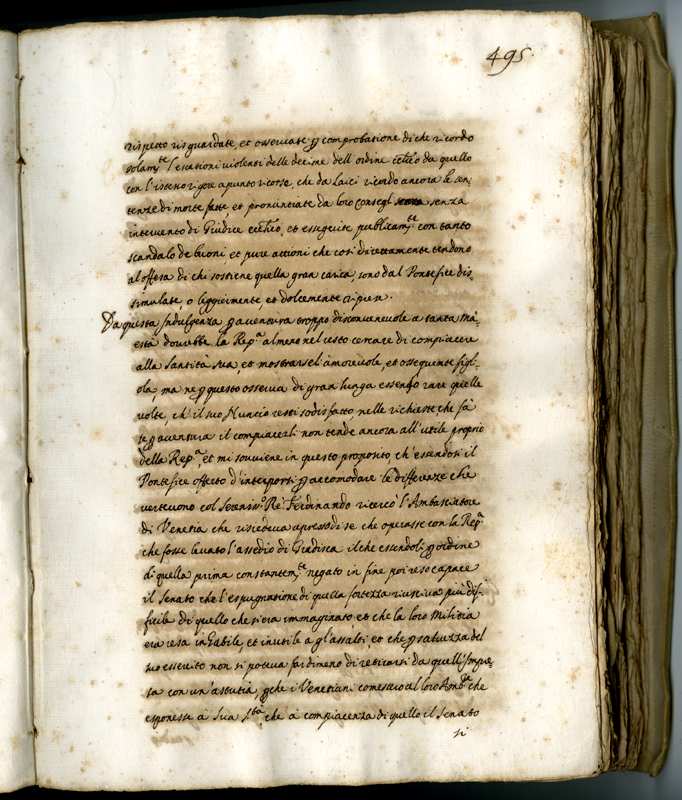 495
rispetto risguardate, et osseruate p comprobatione di che ricordo
solam.te l'esationi violenti delle decime dell'ordine ecc.co da quello
con l'istesso rigore apunto ricorse, che da Laici ricordo ancora le sen-
tenze di morte fatte, et pronuntiate da loro consegl senza
interuento di Giudice ecc.co, et esseguite publicam.te con tanto
scandalo de buoni, et pure attioni che cosi direttamente tendono
al offesa di chi sostiene quella gran carica, sono dal Pontefice dis-
simulate, o leggiermente, et dolcemente ripese.
Da questa Indulgenza p auentura troppo disconueneuole a tanta Ma-
està dourebbe la Rep.a almeno nel resto cercare di compiacere
alla Santità sua et mostrarsel'amoreuole, et ossequente figl-
ola ma ne p questo osserua di gran lunga essendo rare quelle
volte, ch'il suo Nuncio resti sodisfatto nelle richieste che fà
se p auentura il compiacerli non tende ancora all'utile proprio
della Rep.a, et mi souuiene in questo proposito ch'essendosi il
Pontefice offerto d'interporsi p accomodare le differenze che
verteuono col Sereniss.o Rè Ferdinando ricercò l'Ambasciatore
di Venetia che risiedeua apresso di se che operasse con la Rep.a
che fosse leuato l'assedio di Gradisca il che essendoli p ordine
di quella prima constantem.te negato in fine poi reso capace
il Senato che l'espugnatione di quella fortezza riusciua più dif-
ficile di quello che s'era immaginato et che la loro Militia
era resa inhabile, et inutile a gl'assalti et che p saluezza del
suo essercito non si poteua far di meno di retirarsi da quell'Impre-
sa con un'astutia, che i Venetiani comessero al loro Amb.re che
esponesse à Sua S.tà che à compiacenza di quello il Senato
si